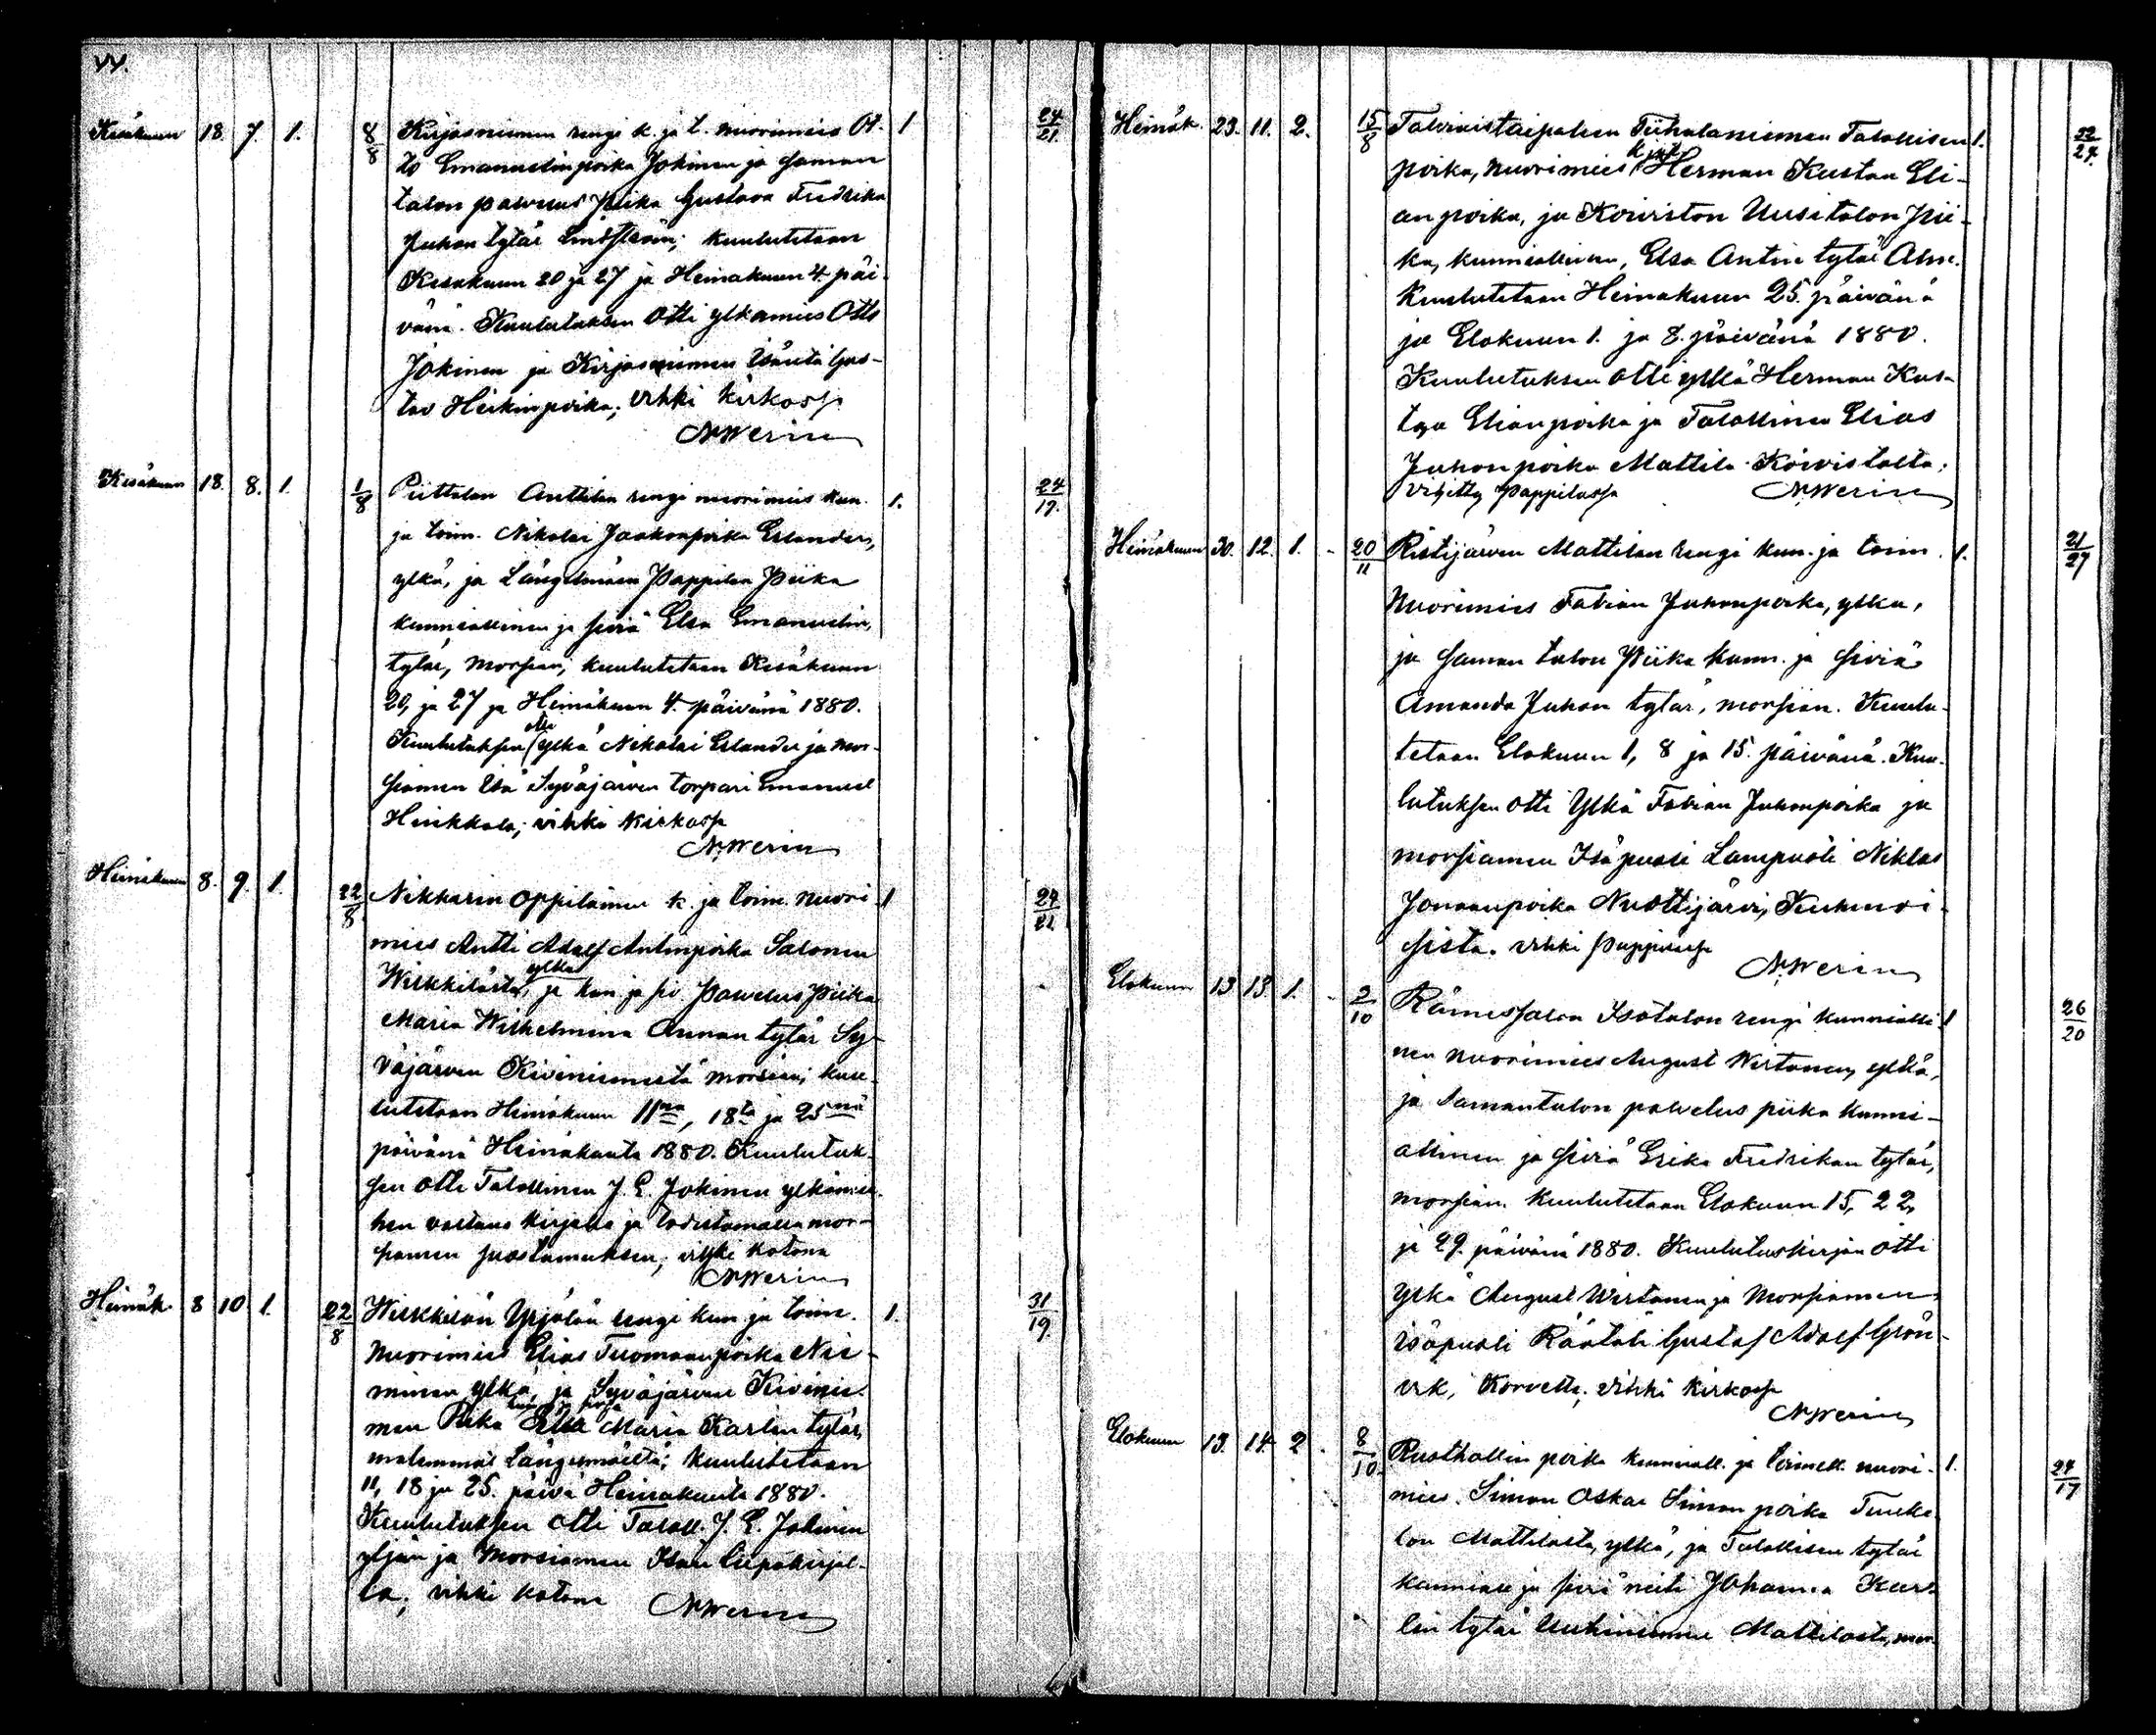 Kesäkuun 18. 7. 1. 8/8 Kirjasniemen rengi k. ja t. nuorimies Ot- 1 24/21.
to Emanuelinpoika Jokinen ja saman
talon palvelus piika Gustava Fredrika
Juhon tytär Lindström; kuulutetaan
Kesäkuun 20 ja 27 ja Heinäkuun 4. päi-
vänä. Kuulutuksen otti ylkämies Otto
Jokinen ja Kirjasniemen Isäntä Gus-
tav Heikinpoika; vihki kirkossa
Kesäkuun 18. 8. 1. 1/8 Piittalan Anttilan rengi nuorimies kun. 1. 24/19.
ja toim. Nikolai Jaakonpoika Erlander,
ylkä, ja Längelmäen Pappilan Piika
kunniallinen ja siviä Elsa Emanuelin
tytär, morsian; kuulutetaan Kesäkuun
20, ja 27 ja Heinäkuun 4. päivänä 1880.
Kuulutuksen otti ylkä Nikolai Erlander ja mor-
siamen Isä Syväjärven torpari Emanuel
Heikkala; vihki kirkossa
Heinäkuun 8. 9. 1. 22/8 Nikkarin oppilainen k. ja toim. nuori- 1 24/21
mies Antti Adolf Antinpoika Salonen
Wilkkilästä, ylkä ja kun ja siv palvelus Piika
Maria Wilhelmina Annan tytär Sy-
väjärven Kiviniemestä morsian; kuu-
lutetaan Heinäkuun 11na, 18ta ja 25nä
päivänä Heinäkuuta 1880. Kuulutuk-
sen otti Talollinen J. E. Jokinen ylkämie-
hen valtaus kirjalla ja todistamalla mor-
siamen suostumuksen; vihki kotona
Heinäk. 8 10 1. 22/8 Wilkkilän Yrjölän rengi kun. ja toim. 1. 31/19.
Nuorimies Elias Tuomaanpoika Nie-
minen ylkä, ja Syväjärven Kivinie-
men Piika kun. ja siviä Elsa Maria Karlin tytär,
molemmat Längelmäeltä; kuulutetaan
11, 18 ja 25. päivä Heinäkuuta 1880.
Kuulutuksen otti Taloll. J. E. Jokinen
yljän ja Morsiamen Isän lupakirjal-
la; vihki kotona
Heinäk. 23. 11. 2. 15/8 Talvistaipaleen Tiihalaniemen Talollisen 1. 22/24.
poika, nuorimies k ja t Herman Kustaa Eli-
an poika, ja Koiviston Uusitalon pii-
ka, kunniallinen, Elsa Antin tytär
Kuulutetaan Heinäkuun 25. päivänä
ja Elokuun 1. ja 8. päivänä 1880.
Kuulutuksen otti ylkä Herman Kus-
taa Elianpoika ja Talollinen Elias
Juhonpoika Mattila Koivistolta;
vihitty pappilassa
Heinäkuun 30. 12. 1. 20/11 Ristijärven Mattilan rengi kun. ja toim. 1. 21/27
Nuorimies Fabian Juhonpoika, ylkä,
ja saman talon Piika kunn. ja siviä
Amanda Juhon tytär, morsian. Kuulu-
tetaan Elokuun 1, 8 ja 15. päivänä. Kuu-
lutuksen otti Ylkä Fabian Juhonpoika ja
morsiamen Isäpuoli Lampuoti Niklas
Jonaanpoika Nuottijärvi, Kuhmoi-
sista. vihki pappilassa
Elokuun 13 13. 1. 2/10 Rämessalon Isotalon rengi kunnialli- 1 26/20
nen nuorimies August Wirtanen, ylkä,
ja samantalon palvelus piika kunni-
allinen ja siviä Erika Fredrikan tytär,
morsian. Kuulutetaan Elokuun 15, 22,
ja 29. päivänä 1880. Kuulutuskirjan otti
ylkä August Wirtanen ja Morsiamen
isäpuoli Räätäli Gustaf Adolf Grön-
vik, vihki kirkossa
Elokuun 13. 14. 2. 8/10. Rusthollin poika kunniall. ja toimell. nuori- 1. 24/17
mies. Simon Oskar Simon poika
Mattilasta, ylkä, ja Talollisen tytär
kunniall ja siviä neiti Johanna Kar-
lin tytär Mattilasta, mor-